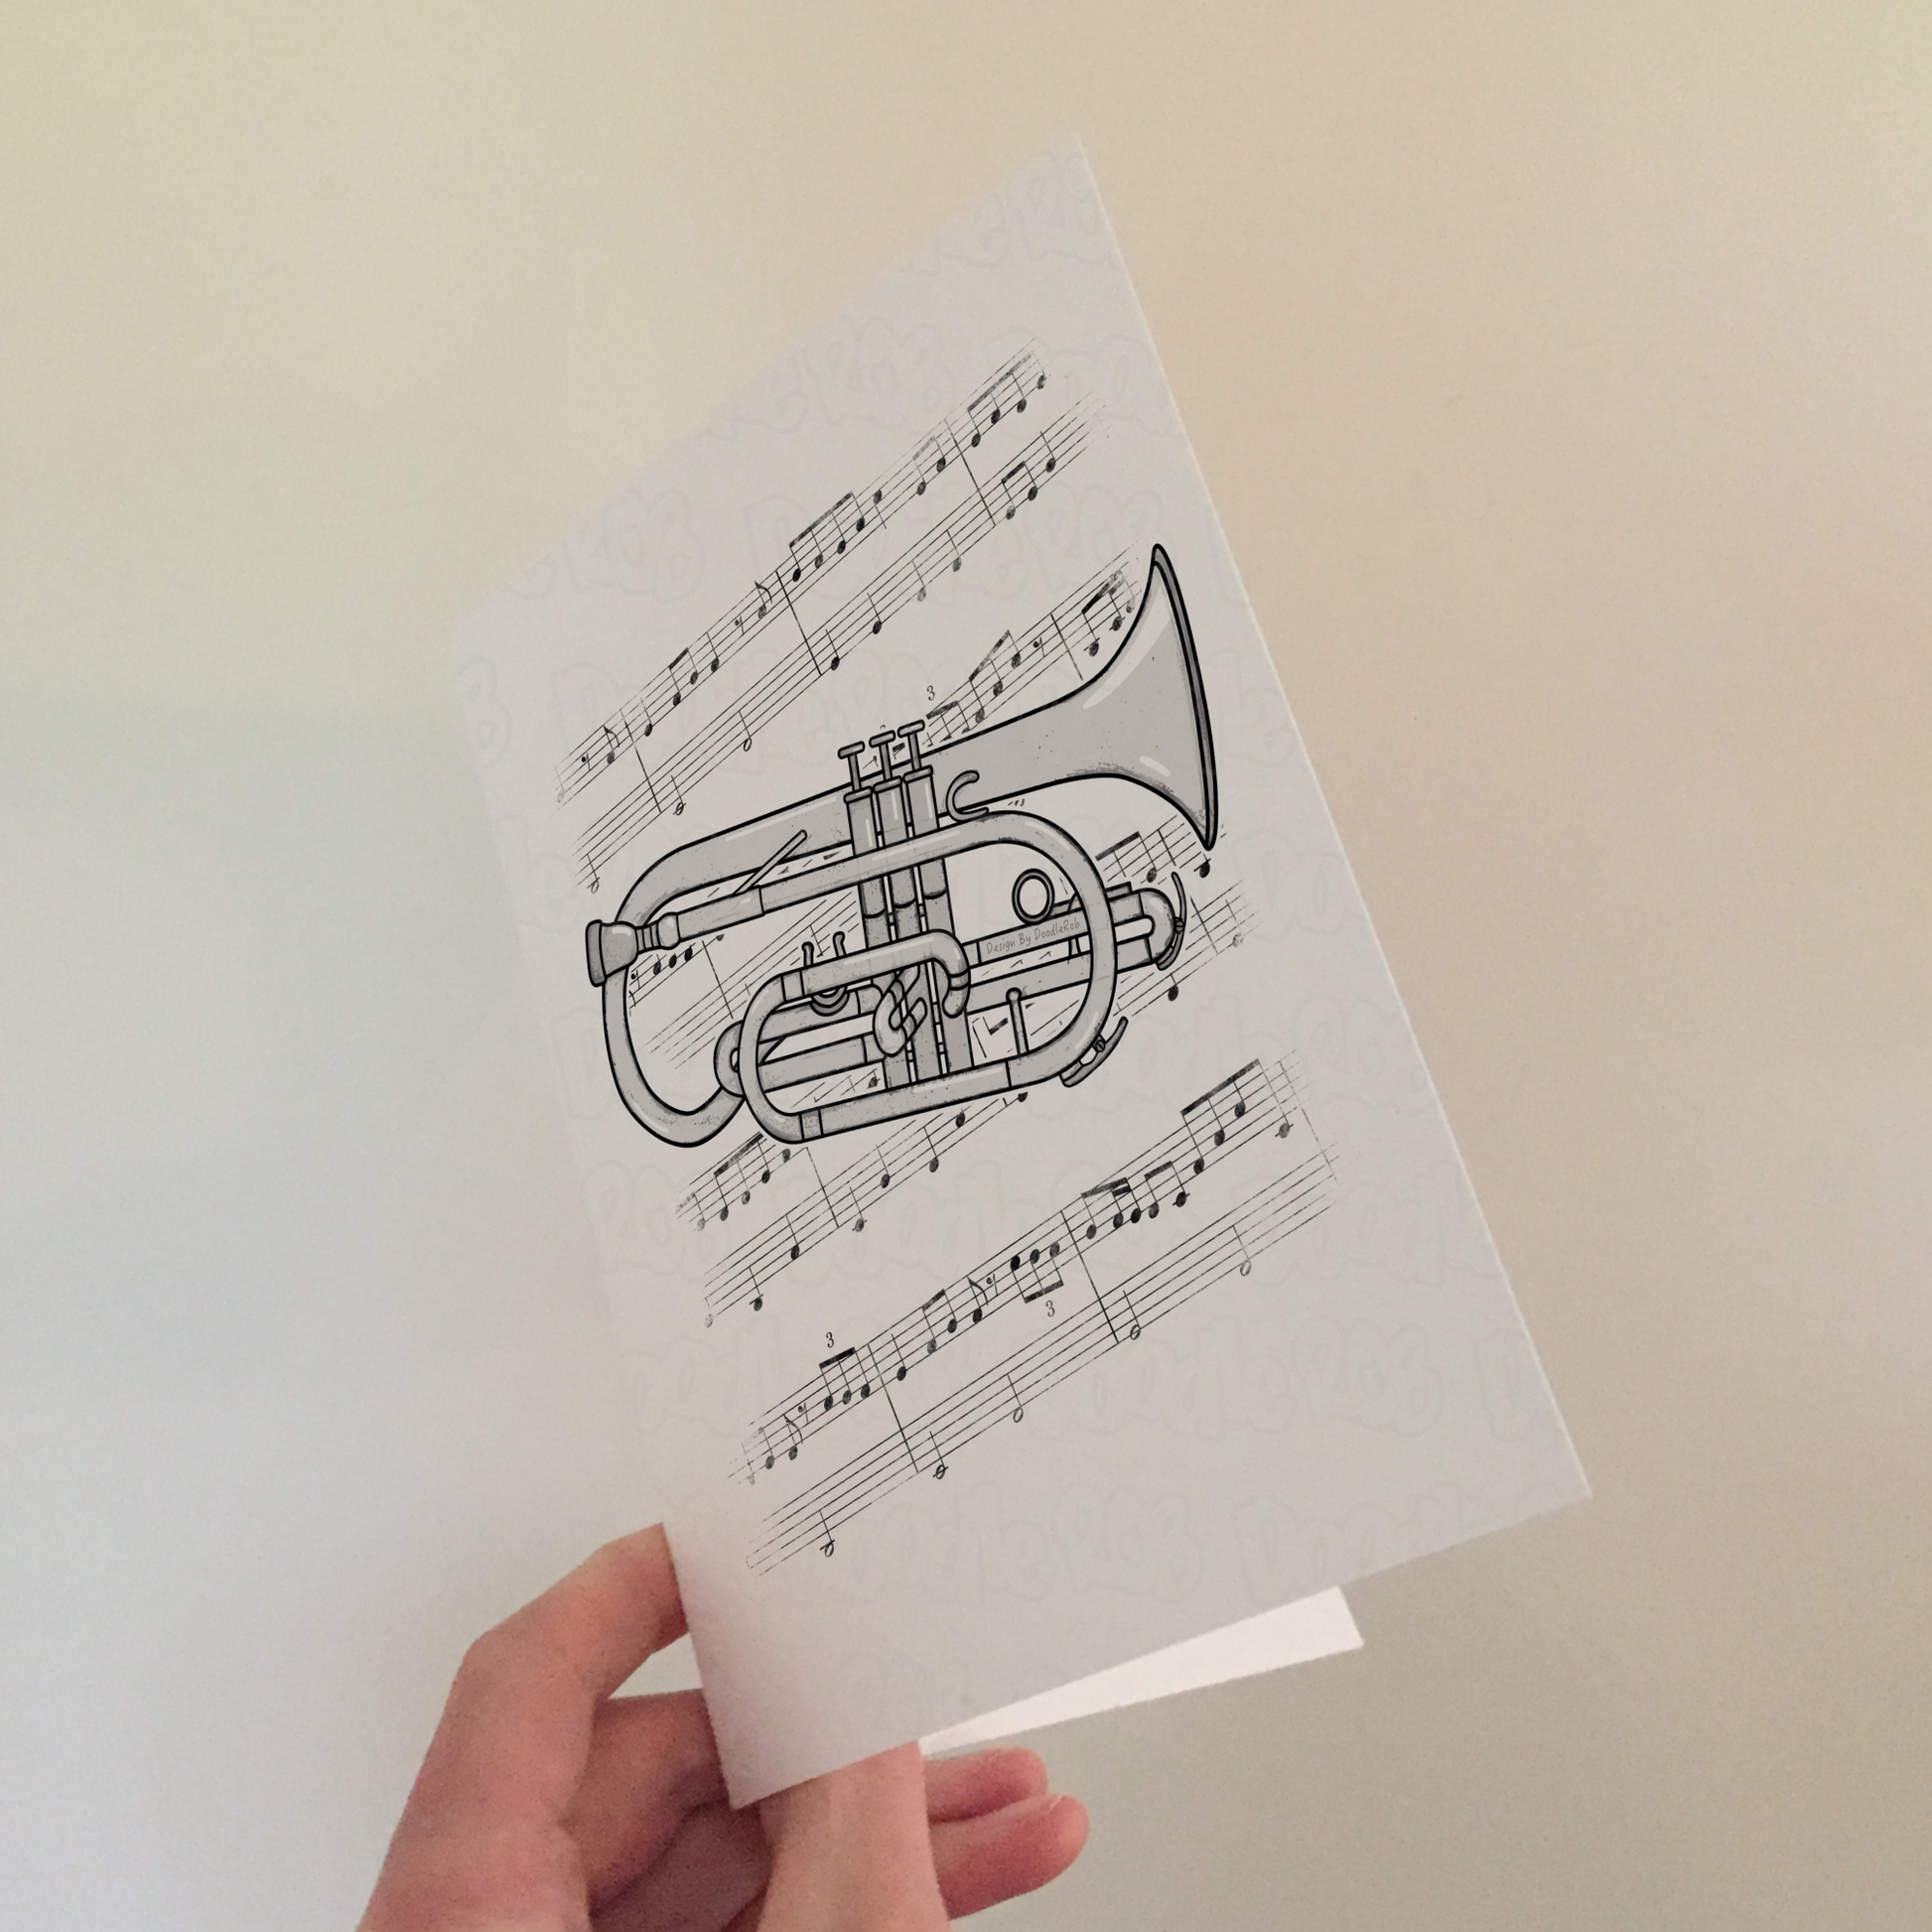 3
Design By DoodleRob
3
3